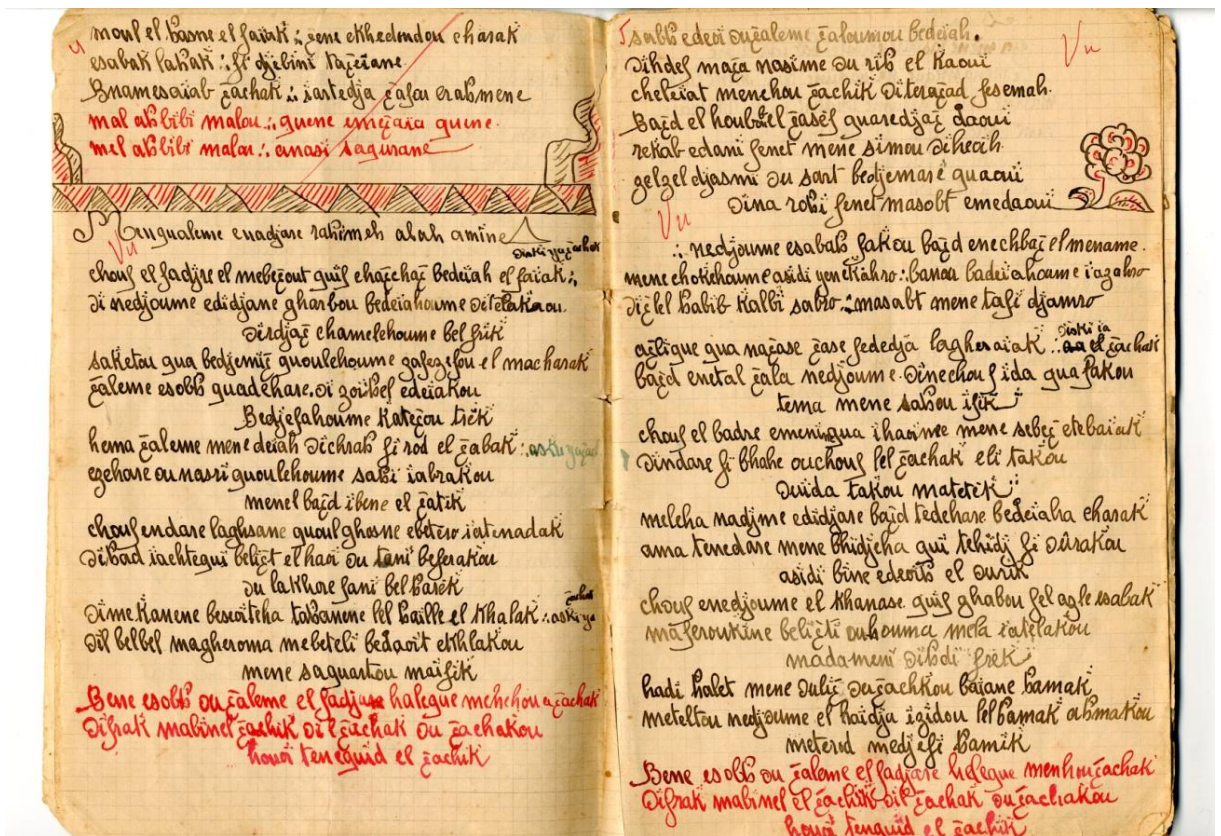 moul el basne el faïrk ∴ zene ekhedoudou charak
esabak lahak ∴ fi djebini tazeiane
mal abbibi malou ∴ guene emezaïa guene
mel abbibi malou ∴ anasi sagurane
Mengualeme enadjare rahimeh alah amine
Vu
chouf el fadjre el mebezout guif chazchaz bedeïah el faïak ∴
oi nedjoume edidjane gharbou bedeiahoume oitelakaou
oirdjaz chamelehoume bel frik
saketou gua bedjemiz guoulehoume zafezefou el macharak
zaleme esobb guadehare oi zoibef edeïakou
Bedjefahoume katezou trek
hema zaleme mene deiah oichrab fi rod el zabak
ezehare ou nasri guoulehoume sabi iabrakou
menel bazd ibene el zatik
chouf endare laghsane guoul ghosne ebetiro iatenadak
oibad iachtegui belizt el hari ou tani beferakou
ou lakhore fani bel barik
oime kanene beseoatcha tabanene lel baille el khalak
oil belbel magheroma mebeteli bedaoit ekhlakou
mene saguartou maifik
Bene esobb ou zaleme el fadjare halegue menehou zachak
oifrak mabinel zachik oil zachak ou zachakou
houoi tenguid el zachik
5 sabb edeoi ou zaleme zaloumou bedeiah.
Vu
oihdef maza nasime ou rib el kaoui
cheleiat menehou zachik oiterazad fesemah.
Bazd el houb el zasef guaredjaz daoui
rekab edani fenet mene simou oiheoih
gelzel djasmi ou sart bedjemare guaoui
oina robi fenet masobt emedaoui
Vu
∴ nedjoume esabab fakou bazd enechbaz el mename.
mene chokehoume asidi yenekahro ∴ banoa badeiahoume iagahro
oizlel babib kalbi sabro ∴ masabt mene tafi djamro
azligue gua nazase zase fededja lagheraïak
bazd enetal zala nedjoume oinechouf ida gua fakou
tema mene sabou ifik
chouf el badre emenngua ihaoinee mene sebez etebaïak
oindare fi bhahe ouchouf lel zachak eli takou
ouida takou matetik
melcha nadjme edidjare bazd tedehare bedeiaha charak
ama tenedare mene bhidjeha gui tehidj fi oûrakou
asidi bine edeoib el ourik
chouf enedjoume el khanase guif ghabou fel azle esabak
maferoukine belizti ouhouma mela iatelakou
madameni oibdi frek
hadi halet mene oulij ou zachkou baïane bamak
meteltou nedjoume el haidja izidou lel bamak abmakou
meterod medjefi bamik
Bene esobb ou zaleme el fadjare helegue menhou zachak
oifrak mabinel el zachik oil zachak ou zachakou
houoi tenguid el zachik